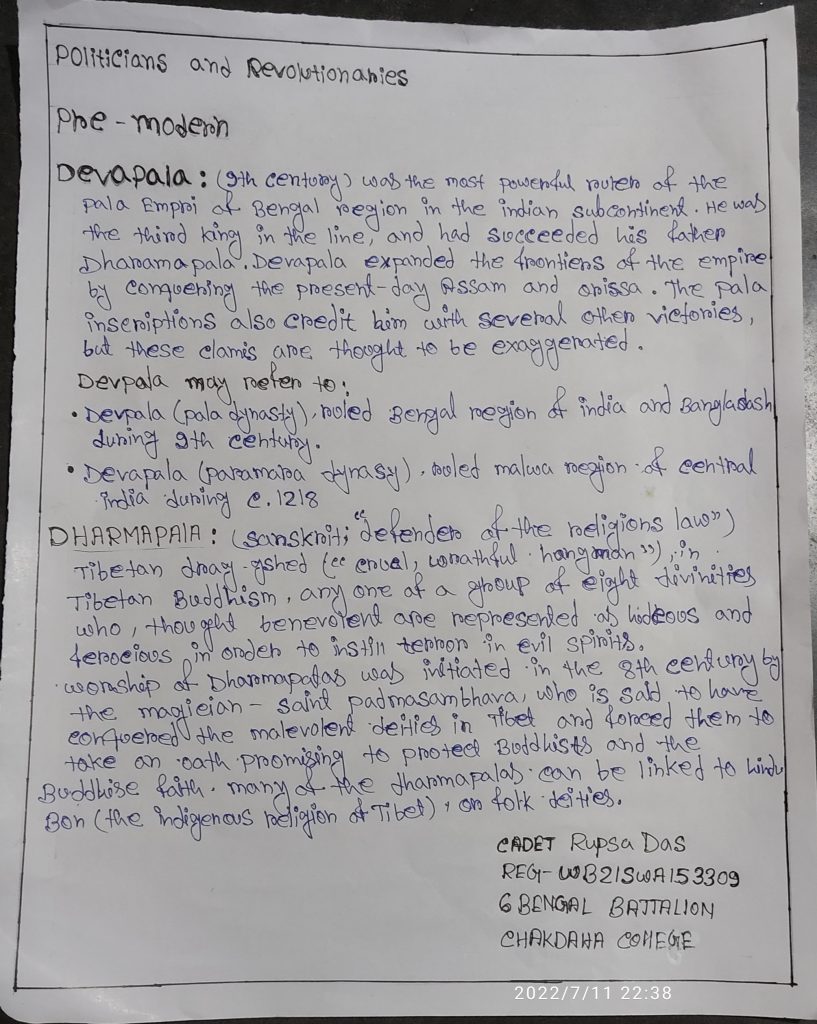 Politicians and Revolutionaries
Pre-modern
Devapala: (9th century) was the most powerful rouler of the
pala Empri of Bengal region in the indian subcontinent. He was
the third king in the line, and had succeeded his father
Dharamapala. Devapala expanded the frontiers of the empire
by conquering the present-day Assam and orissa. The pala
inscriptions also credit him with several other victories,
but these clamis are thought to be exaggerated.
Devpala may refer to:
• Devpala (pala dynasty), rooled Bengal region of india and Bangladash
during 9th century.
• Devapala (paramara dynasy), rooled malwa region of central
india during c. 1218
DHARMAPAlA: (sanskrit; "defender of the religions law")
Tibetan drag-gshed ("cruel, wrathful hangman"), in
Tibetan Buddhism, any one of a group of eight divinities
who, thought benevolent are represented as hideous and
ferocious in order to instill terror in evil spirits.
worship of Dharmapalas was initiated in the 8th century by
the magician - saint padmasambhava, who is said to have
conquered the malevolent deities in Tibet and forced them to
take an oath promising to protect Buddhists and the
Buddhise faith. many of the dharmapalas can be linked to hindu
Bon (the indigenous religion of Tibet), or folk deities.
CADET Rupsa Das
REG- WB21SWA153309
6 BENGAL BATTALION
CHAKDAHA COllEGE
2022/7/11 22:38